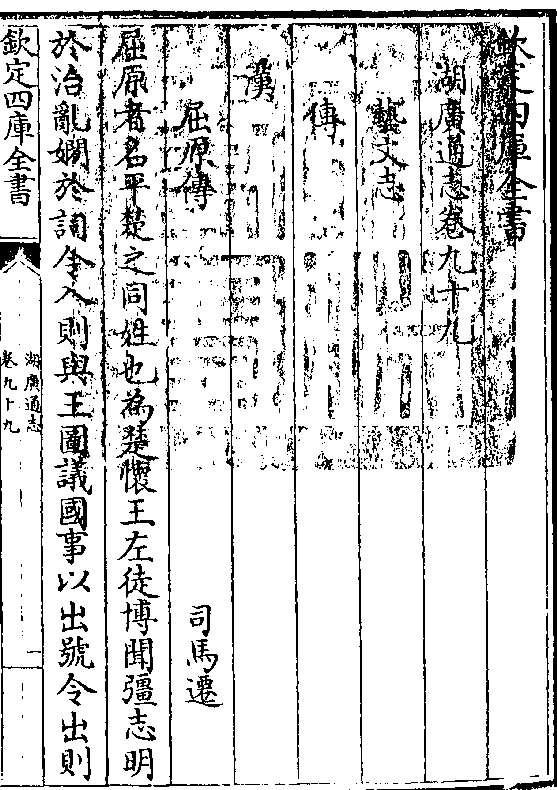 欽定四庫全書
湖廣通志卷九十九
藝文志
傳
漢
屈原傳
司馬遷
屈原者名平楚之同姓也為楚懷王左徒博聞彊志明
於治亂嫻於詞令入則與王圖議國事以出號令出則
欽定四庫全書
湖廣通志
卷九十九
一